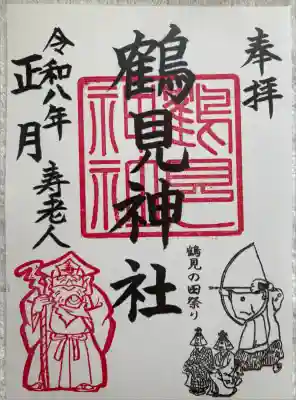 奉拝
鶴見神社
鶴見神社
令和八年
正月
寿老人
鶴見の田祭り